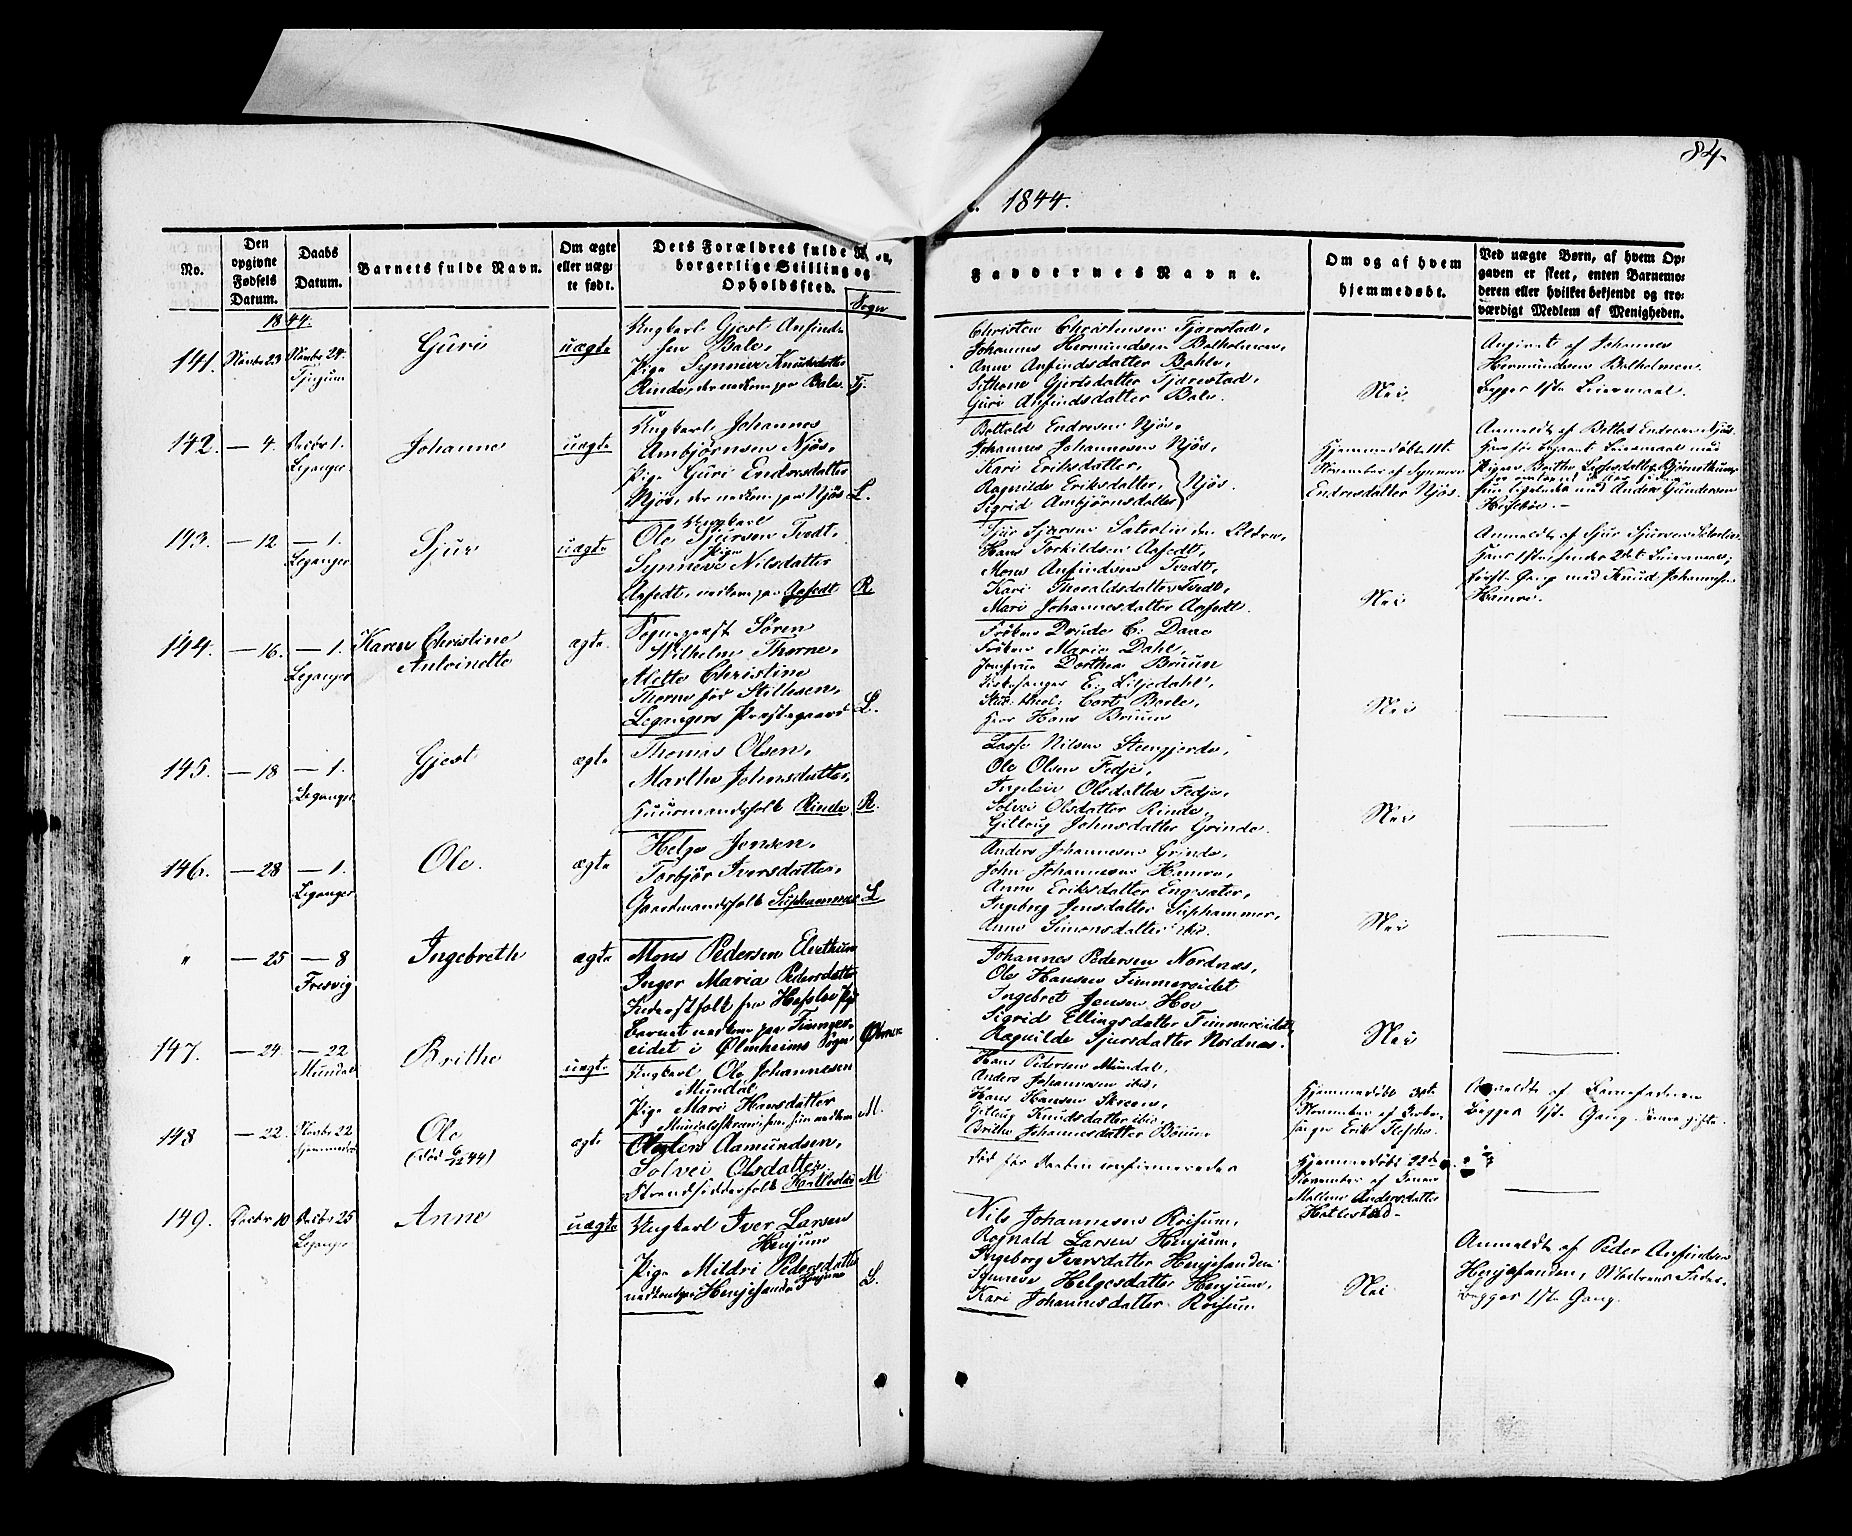 84.
1844.
No.
Den opgivne Fødsels Datum.
Daabs Datum.
Barnets fulde Navn.
Om ægte eller uæg- te født.
Dets Forældres fulde Navn, borgerlige Stilling og Opholdssted.
Sogn
Faddernes Navne.
Om og af hvem hjemmedøbt.
Ved uægte Børn, af hvem Op-
gaven er skeet, enten Barnemo-
deren eller hvilket bekjendt og tro-
værdigt Medlem af Menigheden.
1844.
141.
Novbr 23
Novbr 24.
Tjugum
Guri
uægte
Ungkarl Gjest Anfind-
sen Bale,
Pige Synneve Knudsdatter
Rinde, der nedkom paa Bale.
Tj.
Christen Christensen Tjærestad,
Johannes Hermundsen Balholmen,
Anna Anfindsdatter Bahle,
Sithone Gjertsdatter Tjærestad,
Guri Anfindsdatter Bale.
Nei
Angivet af Johannes
Hermundsen Balholmen.
Begges 1ste Leiermaal.
142.
— 4.
Decbr 1.
Leganger
Johanne
uægte
Ungkarl Johannes
Ambjørnsen Njøs,
Pige Guri Endresdatter
Njøs, der nedkom paa Njøs
L.
Botold Endresen Njøs,
Johannes Johannesen Njøs,
Kari Eriksdatter,
Ragnilde Eriksdatter,
Sigrid Ambjørnsdatter
Njøs.
Hjemmedøbt
November af Synneve
Endresdatter Njøs.
Anmeldt af Botold Endresen Njøs.
Leiermaal med
Pigen Brithe
Hun ligeledes med Anders Gundersen
143.
— 12
— 1.
Leganger
Sjur
uægte
Ungkarl
Ole Sjursen Tvedt,
Pige
Synneve Nilsdatter
Aafedt, nedkom paa Aafedt
R.
Sjur Sjursen Saterlie den Eldre,
Hans Torkildsen Aafedt,
Mons Anfindsen Tvedt,
Kari Thoraldsdatter Tvedt,
Mari Johannesdatter Aafedt.
Nei
Anmeldt af Sjur Sjursen
Hans 1ste, hendes 2det Leiermaal;
første Gang med Knud Johannesen
Hamre.
144.
— 16.
— 1.
Leganger
Karen Christine
Antoinette
ægte.
Sogneprest Søren
Wilhelm Thorne,
Mette Christine
Thorne før Stillesen,
Legangers Præstegaard
L.
Frøken Drude C: Daae
Frøken Maria Dahl,
Jomfrue Dorthea Bruun
E: Liljedahl,
Stud: theol: Cort Berle,
Herr Hans Bruun
Nei
145.
— 18
— 1.
Leganger
Gjest
ægte
Thomas Olsen,
Marthe Johnsdatter,
Huusmandsfolk Rinde
R.
Lasse Nilsen Steengjerde,
Ole Olsen Fedje,
Ingeleiv Olsdatter Fedje,
Solvei Olsdatter Rinde,
Gillaug Johnsdatter Grinde.
Nei
146.
— 28
— 1.
Leganger
Ole.
ægte
Helge Jensen,
Torbjør Iversdatter,
Gaardmandsfolk Suphammer
L
Anders Johannesen Grinde,
John Johannesen Hamre,
Anna Eriksdatter Engesæter,
Ingeborg Jensdatter Suphammer,
Anne Simonsdatter ibid.
Nei
"
— 25
— 8
Fresvig
Ingebreth
ægte
Mons Pedersen
Inger Maria Pedersdatter
Inderstfolk fra
Barnet nedkom paa Timmer-
eidet i Ølmheims Sogn
Johannes Pedersen Nordnæs,
Ole Hansen Timmereidet
Ingebret Jensen Hov
Sigrid Ellingsdatter Timmereidet,
Ragnilde Sjursdatter Nordnæs.
Nei
147.
— 24.
— 22
Mundal
Brithe
uægte
Ungkarl Ole Johannesen
Mundal
Pige Mari Hansdatter
M.
Hans Pedersen Mundal,
Anders Johannesen ibid,
Hans Hansen Skreen,
Gillaug Knudsdatter ibid.
Brithe Johannesdatter Bøium
Hjemmedøbt
November af Kirke-
sanger Erik Flesche.
Anmeldt af Barnefaderen
Begges 1ste Gang.
148
— 22.
Novbr 22
Hjemmedøbt
Ole
(død 6/12 44)
ægte
Aamundsen,
Solvei Olsdatter
Strandsidderfolk Hatlestad
M
død før Daaben confirmeredes
Hjemmedøbt 22de
November af
Malene Andersdatter
Hatlestad
149.
Decbr 10
Decbr 25
Leganger
Anne
uægte
Ungkarl Iver Larsen
Henjum
Pige Mildri Pedersdatter
Henjesanden
L.
Nils Johannesen Røisum,
Rognald Larsen Henjum,
Ingeborg Iversdatter Henjesanden
Synneve Helgesdatter Henjum,
Kari Johannesdatter Røisum
Nei
Anmeldt af Peder Anfindsen
Henjesanden, Moderens Fader.
Begges 1ste Gang.